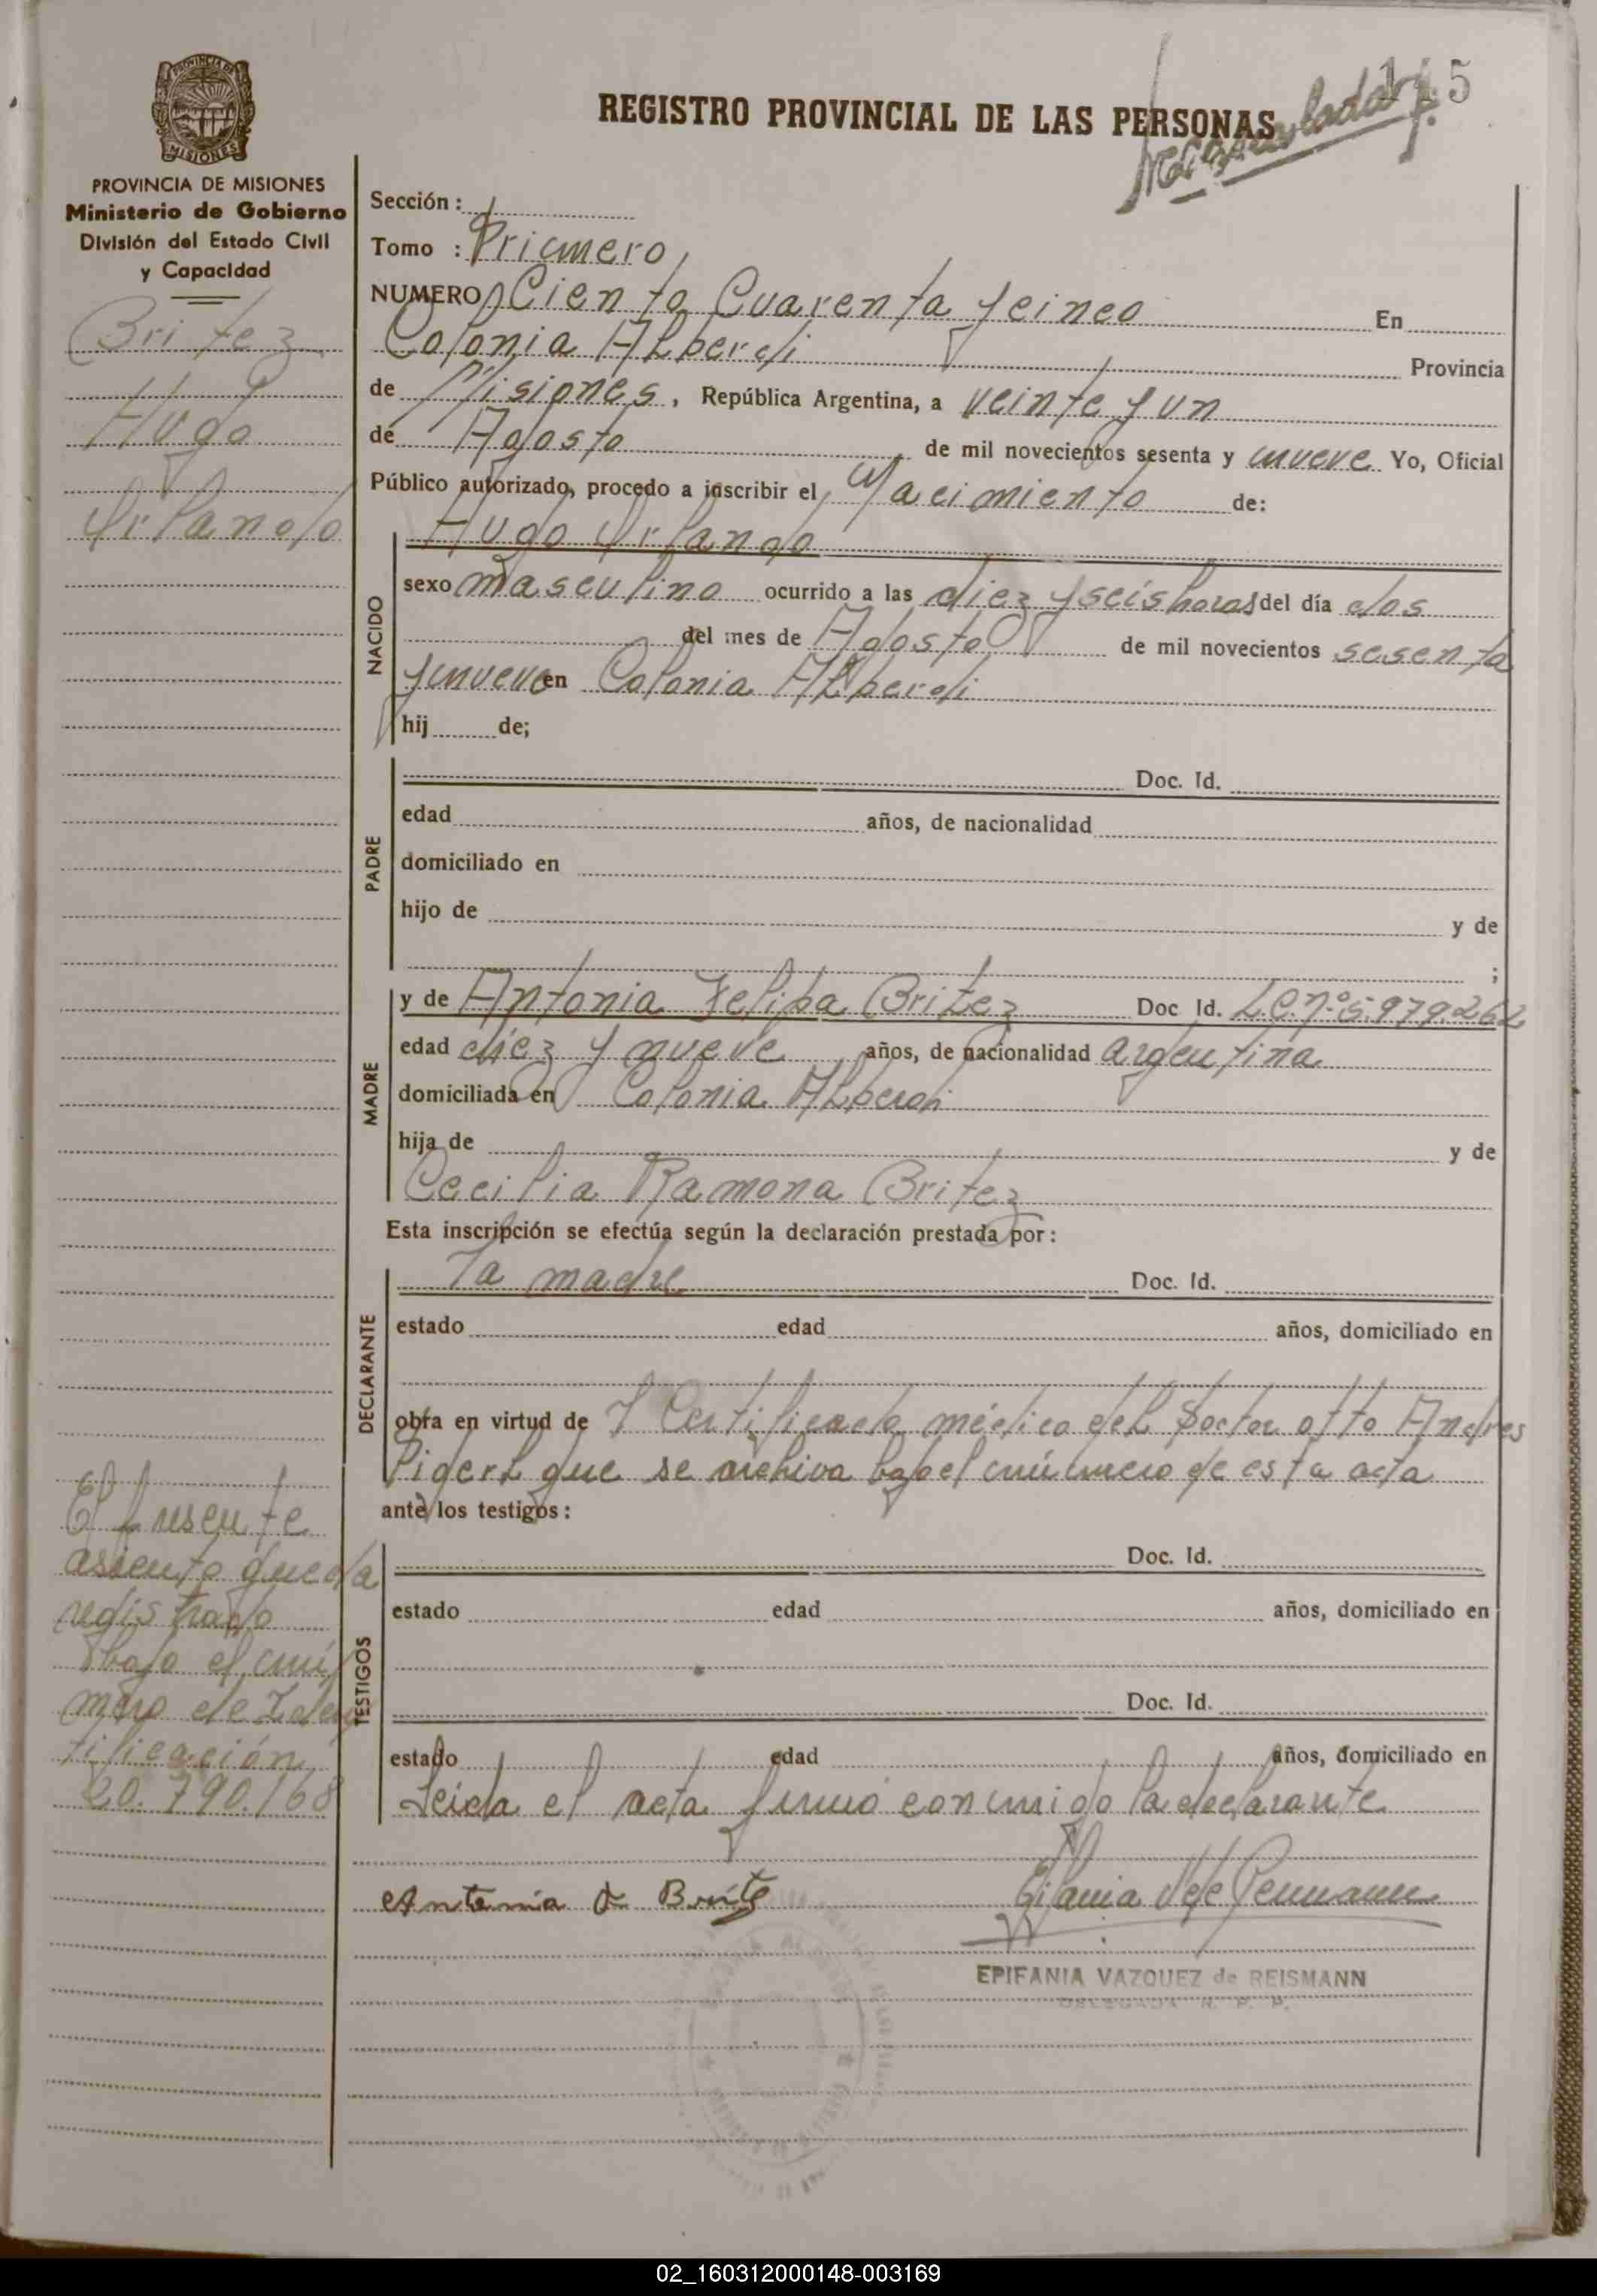 145
REGISTRO PROVINCIAL DE LAS PERSONAS
PROVINCIA DE MISIONES
Ministerio de Gobierno
División del Estado Civil
y Capacidad
Britez
Hugo
Orlando
Sección :
Tomo : Primero
NUMERO Ciento Cuarenta y cinco En
Colonia Alberdi Provincia
de Misiones, República Argentina, a veinte y un
de Agosto de mil novecientos sesenta y nueve Yo, Oficial
Público autorizado, procedo a inscribir el Nacimiento de:
NACIDO
Hugo Orlando
sexo masculino ocurrido a las diez y seis horas del día dos
del mes de Agosto de mil novecientos sesenta
y nueve en Colonia Alberdi
hij de;
PADRE
Doc. Id.
edad años, de nacionalidad
domiciliado en
hijo de y de
;
MADRE
y de Antonia Felipa Britez Doc Id. L.C.nº 5.979.262
edad diez y nueve años, de nacionalidad argentina
domiciliada en Colonia Alberdi
hija de y de
Cecilia Ramona Britez
Esta inscripción se efectúa según la declaración prestada por:
DECLARANTE
la madre Doc. Id.
estado edad años, domiciliado en
obra en virtud de 1 Certificado médico del Doctor Otto Andres
que se archiva bajo el número de esta acta
ante los testigos:
TESTIGOS
Doc. Id.
estado edad años, domiciliado en
Doc. Id.
estado edad años, domiciliado en
Leida el acta firmó conmigo la declarante
El presente
asiento queda
registrado
bajo el nú
mero de Iden
tificación
20.790.168
Antonia Brite
EPIFANIA VAZQUEZ de REISMANN
DELEGADA R. P. P.
02_160312000148-003169